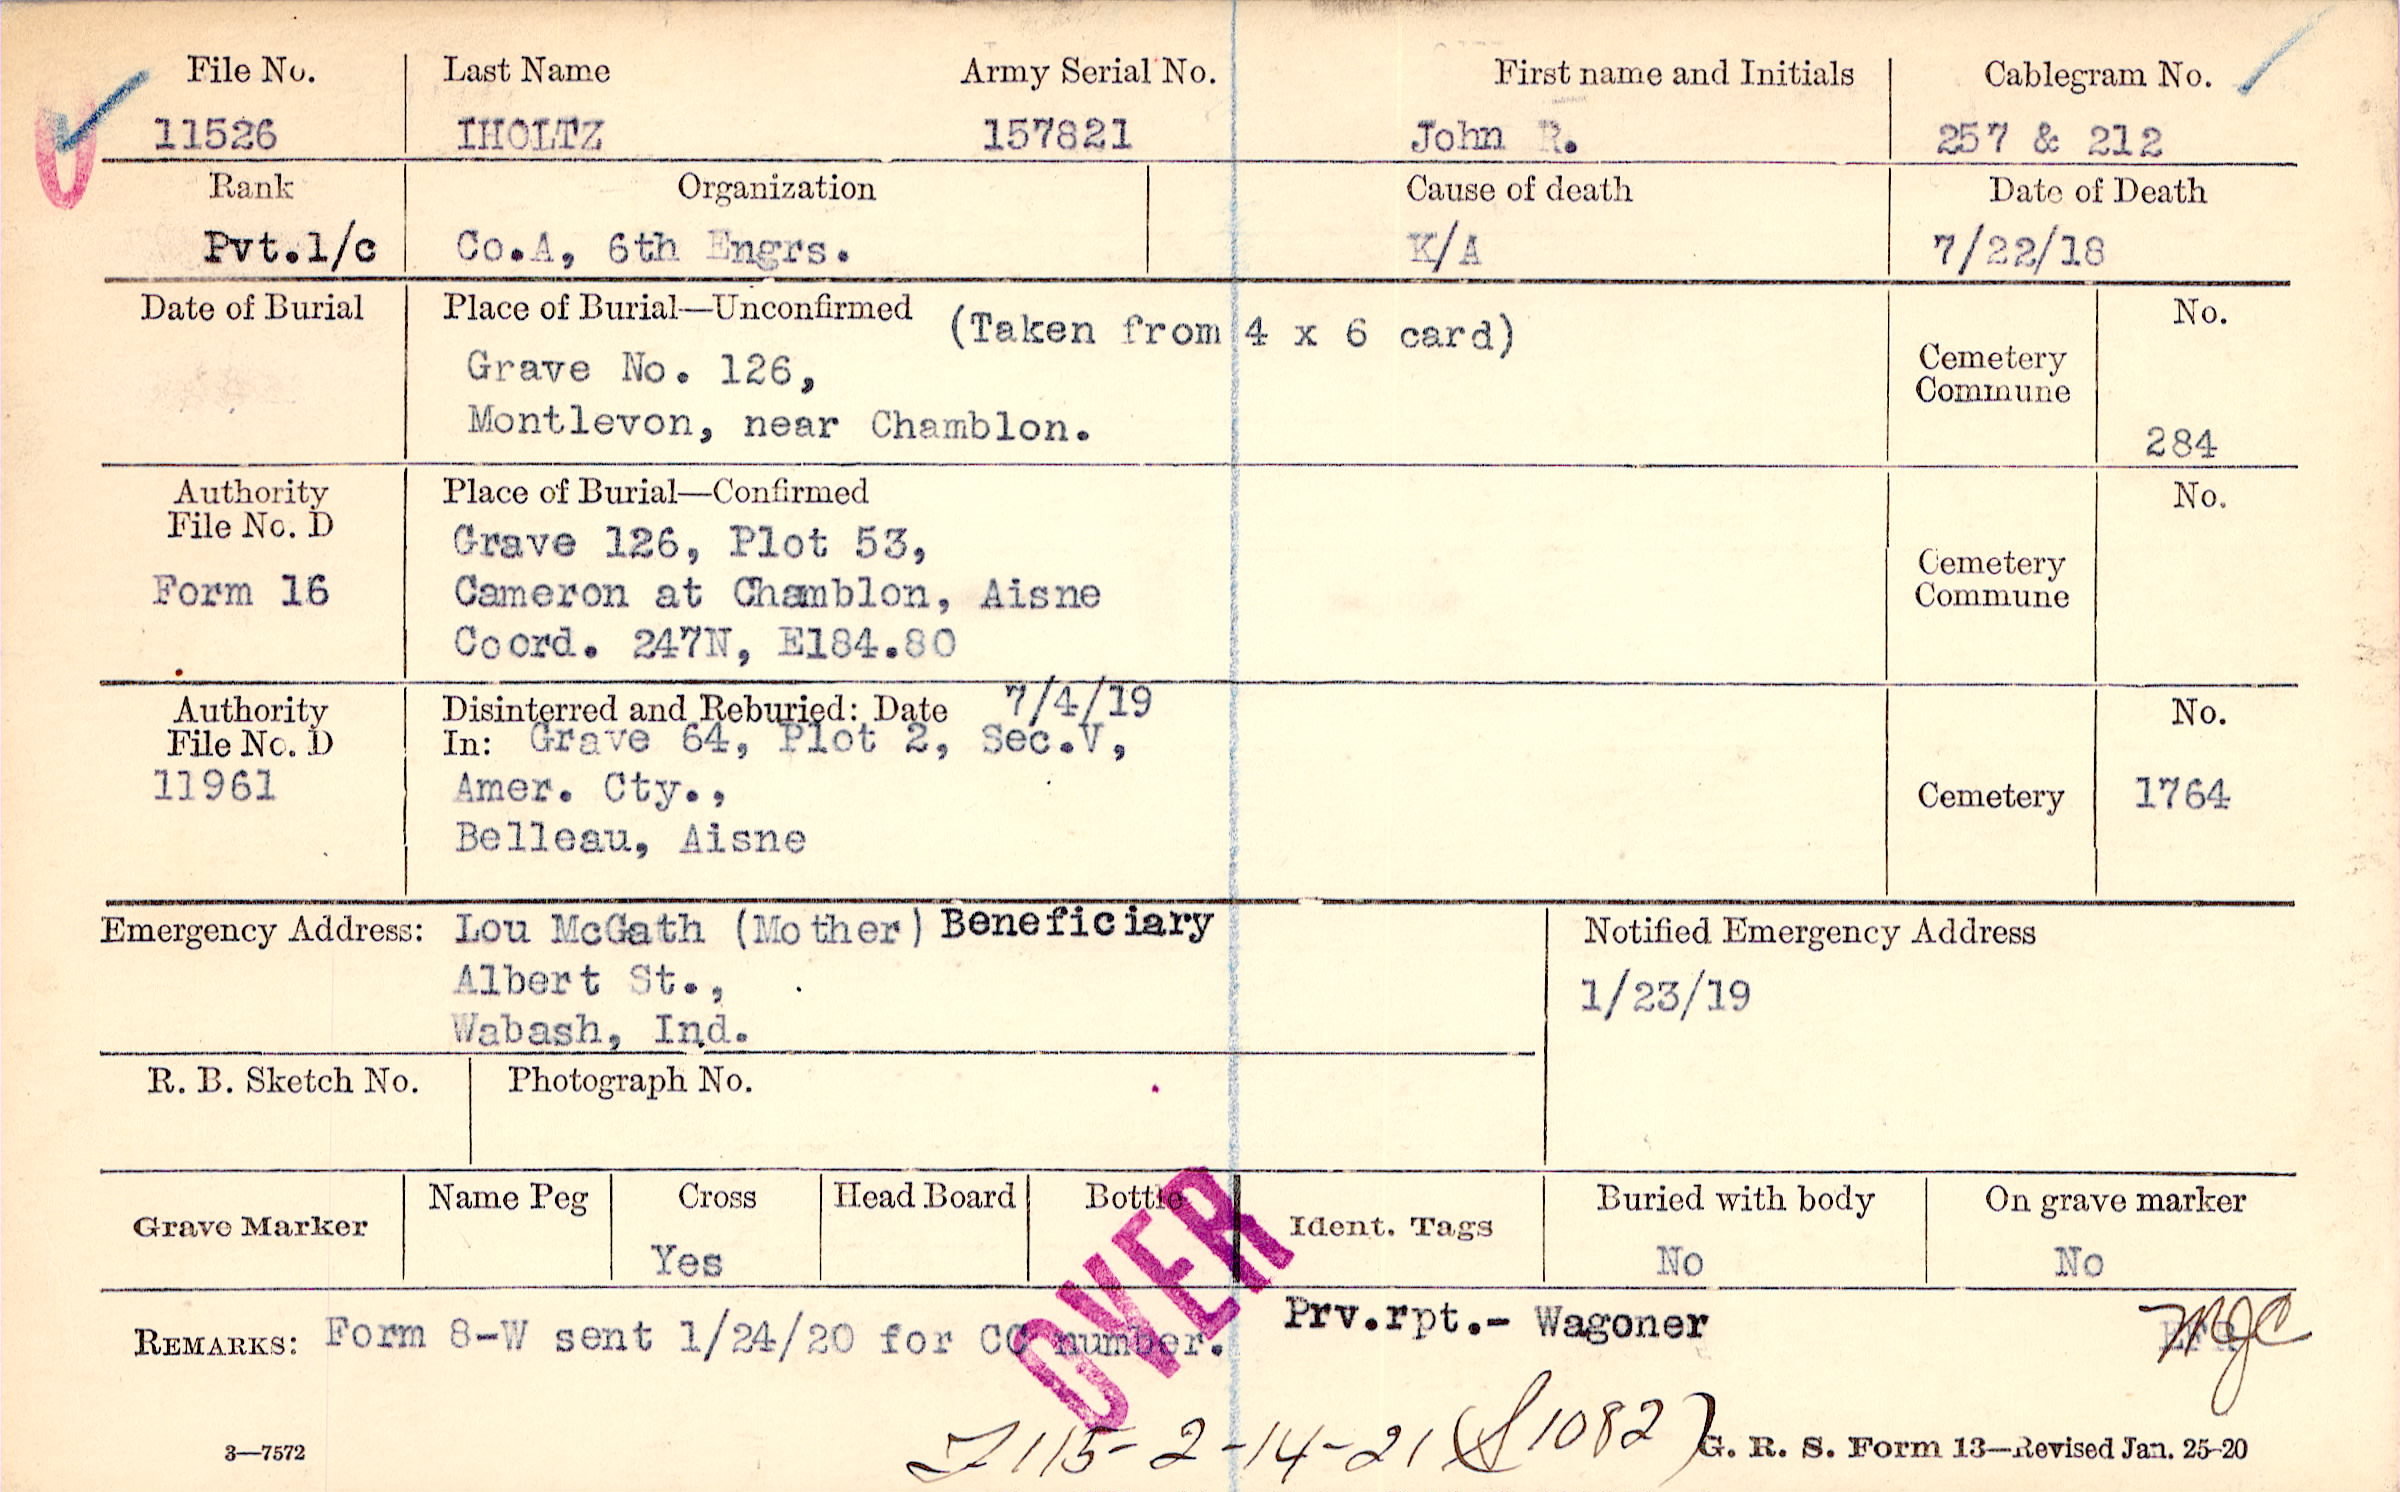 File No. Last Name Army Serial No. First name and Initials Cablegram No.
11526 IHOLTZ 157821 John R. 257 & 212
Rank Organization Cause of death Date of Death
Pvt.1/c Co.A, 6th Engrs. K/A 7/22/18
Date of Burial Place of Burial—Unconfirmed (Taken from 4 x 6 card) No.
Grave No. 126, Cemetery
Commune
Montlevon, near Chamblon. 284
Authority Place of Burial—Confirmed No.
File No. D
Grave 126, Plot 53,
Form 16 Cameron at Chamblon, Aisne Cemetery
Commune
Coord. 247N, E184.80
Authority Disinterred and Reburied: Date 7/4/19 No.
File No. D In: Grave 64, Plot 2, Sec.V,
11961 Amer. Cty., Cemetery 1764
Belleau, Aisne
Emergency Address: Lou McGath (Mother) Beneficiary Notified Emergency Address
Albert St., 1/23/19
Wabash, Ind.
R. B. Sketch No. Photograph No.
Grave Marker Name Peg Cross Head Board Bottle Ident. Tags Buried with body On grave marker
Yes No No
OVER
REMARKS: Form 8-W sent 1/24/20 for CC number. Prv.rpt.- Wagoner MJC
115-2-14-21 (S1082)
3—7572 G. R. S. Form 13—Revised Jan. 25-20